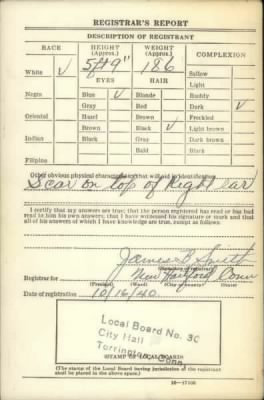 REGISTRAR'S REPORT
DESCRIPTION OF REGISTRANT
RACE HEIGHT (Approx.) WEIGHT (Approx.) COMPLEXION
White ✓ 5ft 9" 186 Sallow
EYES HAIR Light
Negro Blue ✓ Blonde Ruddy
Gray Red Dark ✓
Oriental Hazel Brown Freckled
Brown Black ✓ Light brown
Indian Black Gray Dark brown
Bald Black
Filipino
Other obvious physical characteristics that will aid in identification
Scar on top of Right ear
I certify that my answers are true; that the person registered has read or has had
read to him his own answers; that I have witnessed his signature or mark and that
all of his answers of which I have knowledge are true, except as follows:
James B Smith
(Signature of registrar)
Registrar for New Hartford Conn
(Precinct) (Ward) (City or county) (State)
Date of registration 10/16/40
Local Board No. 30
City Hall
Torrington, Conn
(STAMP OF LOCAL BOARD)
(The stamp of the Local Board having jurisdiction of the registrant
shall be placed in the above space.)
16—17105